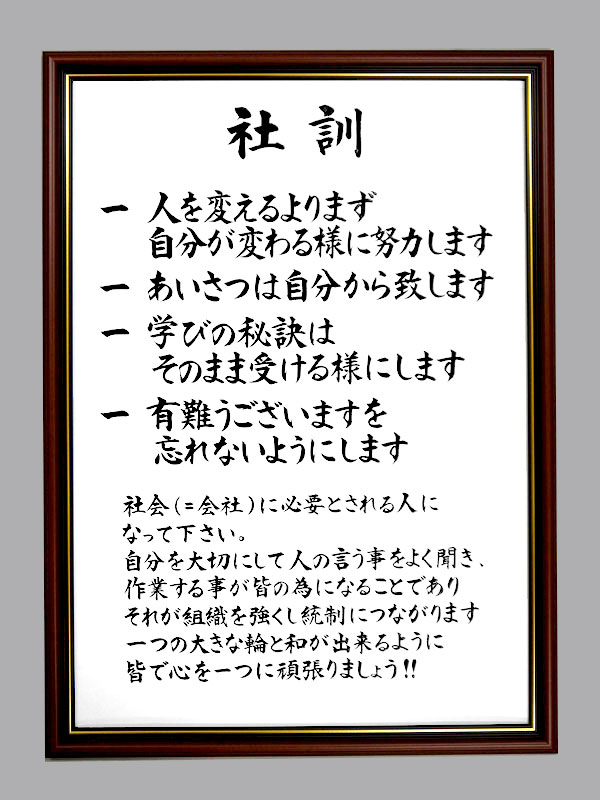 社訓
一 人を変えるよりまず
自分が変わる様に努力します
一 あいさつは自分から致します
一 学びの秘訣は
そのまま受ける様にします
一 有難うございますを
忘れないようにします
社会(=会社)に必要とされる人に
なって下さい。
自分を大切にして人の言う事をよく聞き、
作業する事が皆の為になることであり
それが組織を強くし統制につながります
一つの大きな輪と和が出来るように
皆で心を一つに頑張りましょう!!